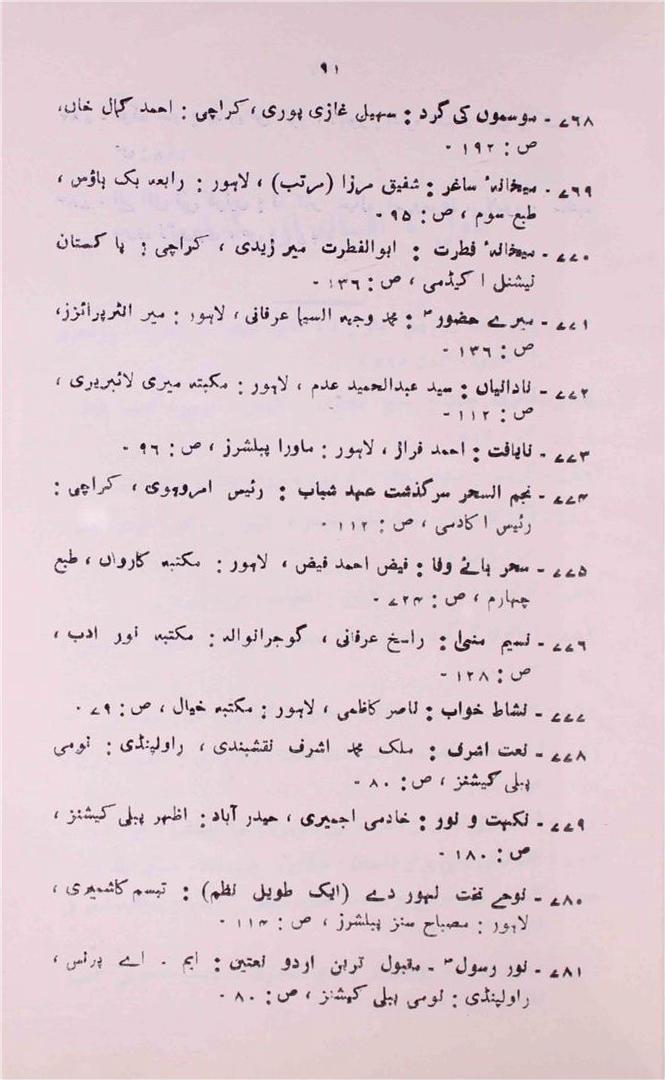 ۹۱
۷۶۸ - موسموں کی گرد : سہیل غازی پوری ، کراچی : احمد کمال خاں،
ص : ۱۹۲ -
۷۶۹ - میخانۂ ساغر : شفیق مرزا (مرتب) ، لاہور : رابعہ بک ہاؤس ،
طبع سوم ، ص : ۹۵ -
۷۷۰ - میخانۂ فطرت : ابوالفطرت میر زیدی ، کراچی : پاکستان
نیشنل اکیڈمی ، ص : ۱۳۶ -
۷۷۱ - میرے حضورؐ : محمد وجیہ السیما عرفانی ، لاہور : میر انٹرپرائزز،
ص : ۱۳۶ -
۷۷۲ - نادانیاں : سید عبدالحمید عدم ، لاہور : مکتبہ میری لائبریری ،
ص : ۱۱۲ -
۷۷۳ - نایافت : احمد فراز ، لاہور : ماورا پبلشرز ، ص : ۹۶ -
۷۷۴ - نجم السحر سرگذشت عہد شباب : رئیس امروہوی ، کراچی :
رئیس اکادمی ، ص : ۱۱۲ -
۷۷۵ - سحر ہائے وفا : فیض احمد فیض ، لاہور : مکتبہ کارواں ، طبع
چہارم ، ص : ۷۲۴ -
۷۷۶ - نسیم منیٰ : راسخ عرفانی ، گوجرانوالہ : مکتبہ نور ادب ،
ص : ۱۲۸ -
۷۷۷ - نشاط خواب : ناصر کاظمی ، لاہور : مکتبہ خیال ، ص : ۷۹ -
۷۷۸ - نعت اشرف : ملک محمد اشرف نقشبندی ، راولپنڈی : نومی
پبلی کیشنز ، ص : ۸۰ -
۷۷۹ - نکہت و نور : خادمی اجمیری ، حیدر آباد : اظہر پبلی کیشنز ،
ص : ۱۸۰ -
۷۸۰ - نوحے تخت لہور دے (ایک طویل نظم) : تبسم کاشمیری ،
لاہور : مصباح سنز پبلشرز ، ص : ۱۱۴ -
۷۸۱ - نور رسولؐ - مقبول ترین اردو نعتیں : ایم - اے پرنس ،
راولپنڈی : نومی پبلی کیشنز ، ص : ۸۰ -